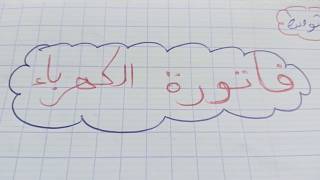 فاتورة الكهرباء